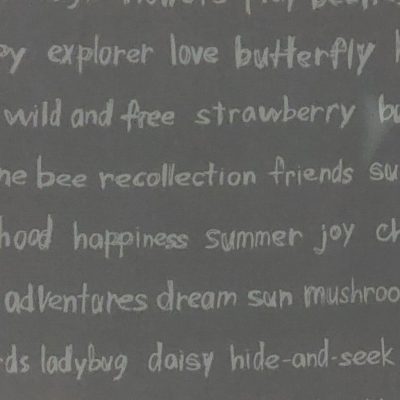 explorer love butterfly
wild and free strawberry
bee recollection friends
happiness summer joy
adventures dream sun
ladybug daisy hide-and-seek